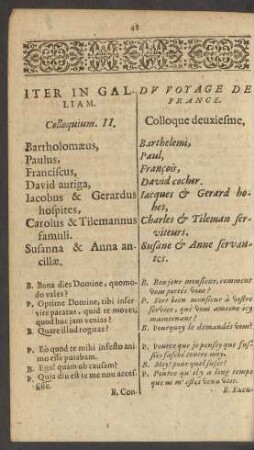 48
ITER IN GAL-
LIAM.
Colloquium. II.
Bartholomæus,
Paulus,
Franciscus,
David auriga,
Iacobus & Gerardus
hospites,
Carolus & Tilemannus
famuli.
Susanna & Anna an-
cillæ.
B. Bona dies Domine, quomo-
do vales?
P. Optime Domine, tibi inser-
vire paratus, quid te movet,
quod huc jam venias?
B. Quare illud rogitas?
P. Eò quod te mihi infesto ani-
mo esse putabam.
B. Ego? quam ob causam?
P. Quia diu est te me non acces-
sisse.
B. Con-
DV VOYAGE DE
FRANCE.
Colloque deuxiesme,
Barthelemi,
Paul,
François,
David cocher.
Iacques & Gerard ho-
stes,
Charles & Tileman ser-
viteurs.
Susane & Anne servan-
tes.
B. Bon jour monsieur, comment
vous portés vous?
P. Fort bien monsieur à vostre
service, qui vous ameine icy
maintenant?
B. Pourquoy le demandés vous?
P. Pource que je pensoy que fus-
siés fasché contre moy.
B. Moy? pour quel sujet?
P. Pource qu'il y a long temps
que ne m'estes venu voir.
B. Excu-